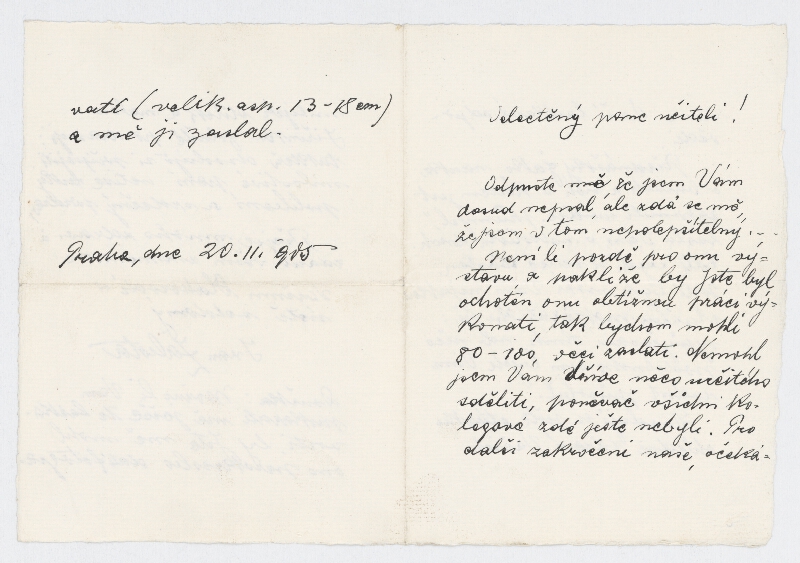 vati (velik. asp. 13-18 cm)
a mě ji zaslal.
Praha, dne 20. 11. 905
Velectěný pane učiteli!
Odpuste mě že jsem Vám
dosud nepsal, ale zdá se mě,
že jsem v tom nepolepšitelný. --
Není li pozdě pro onu vý-
stavu a pakliže by jste byl
ochotén onu obtížnou práci vý-
konati, tak bychom mohli
80-100, věcí zaslati. Nemohl
jsem Vám dříve něco určitého
sděliti, poněvač všichni ko-
legové zdé ještě nebyli. Pro
další zakročení naše, očeká-